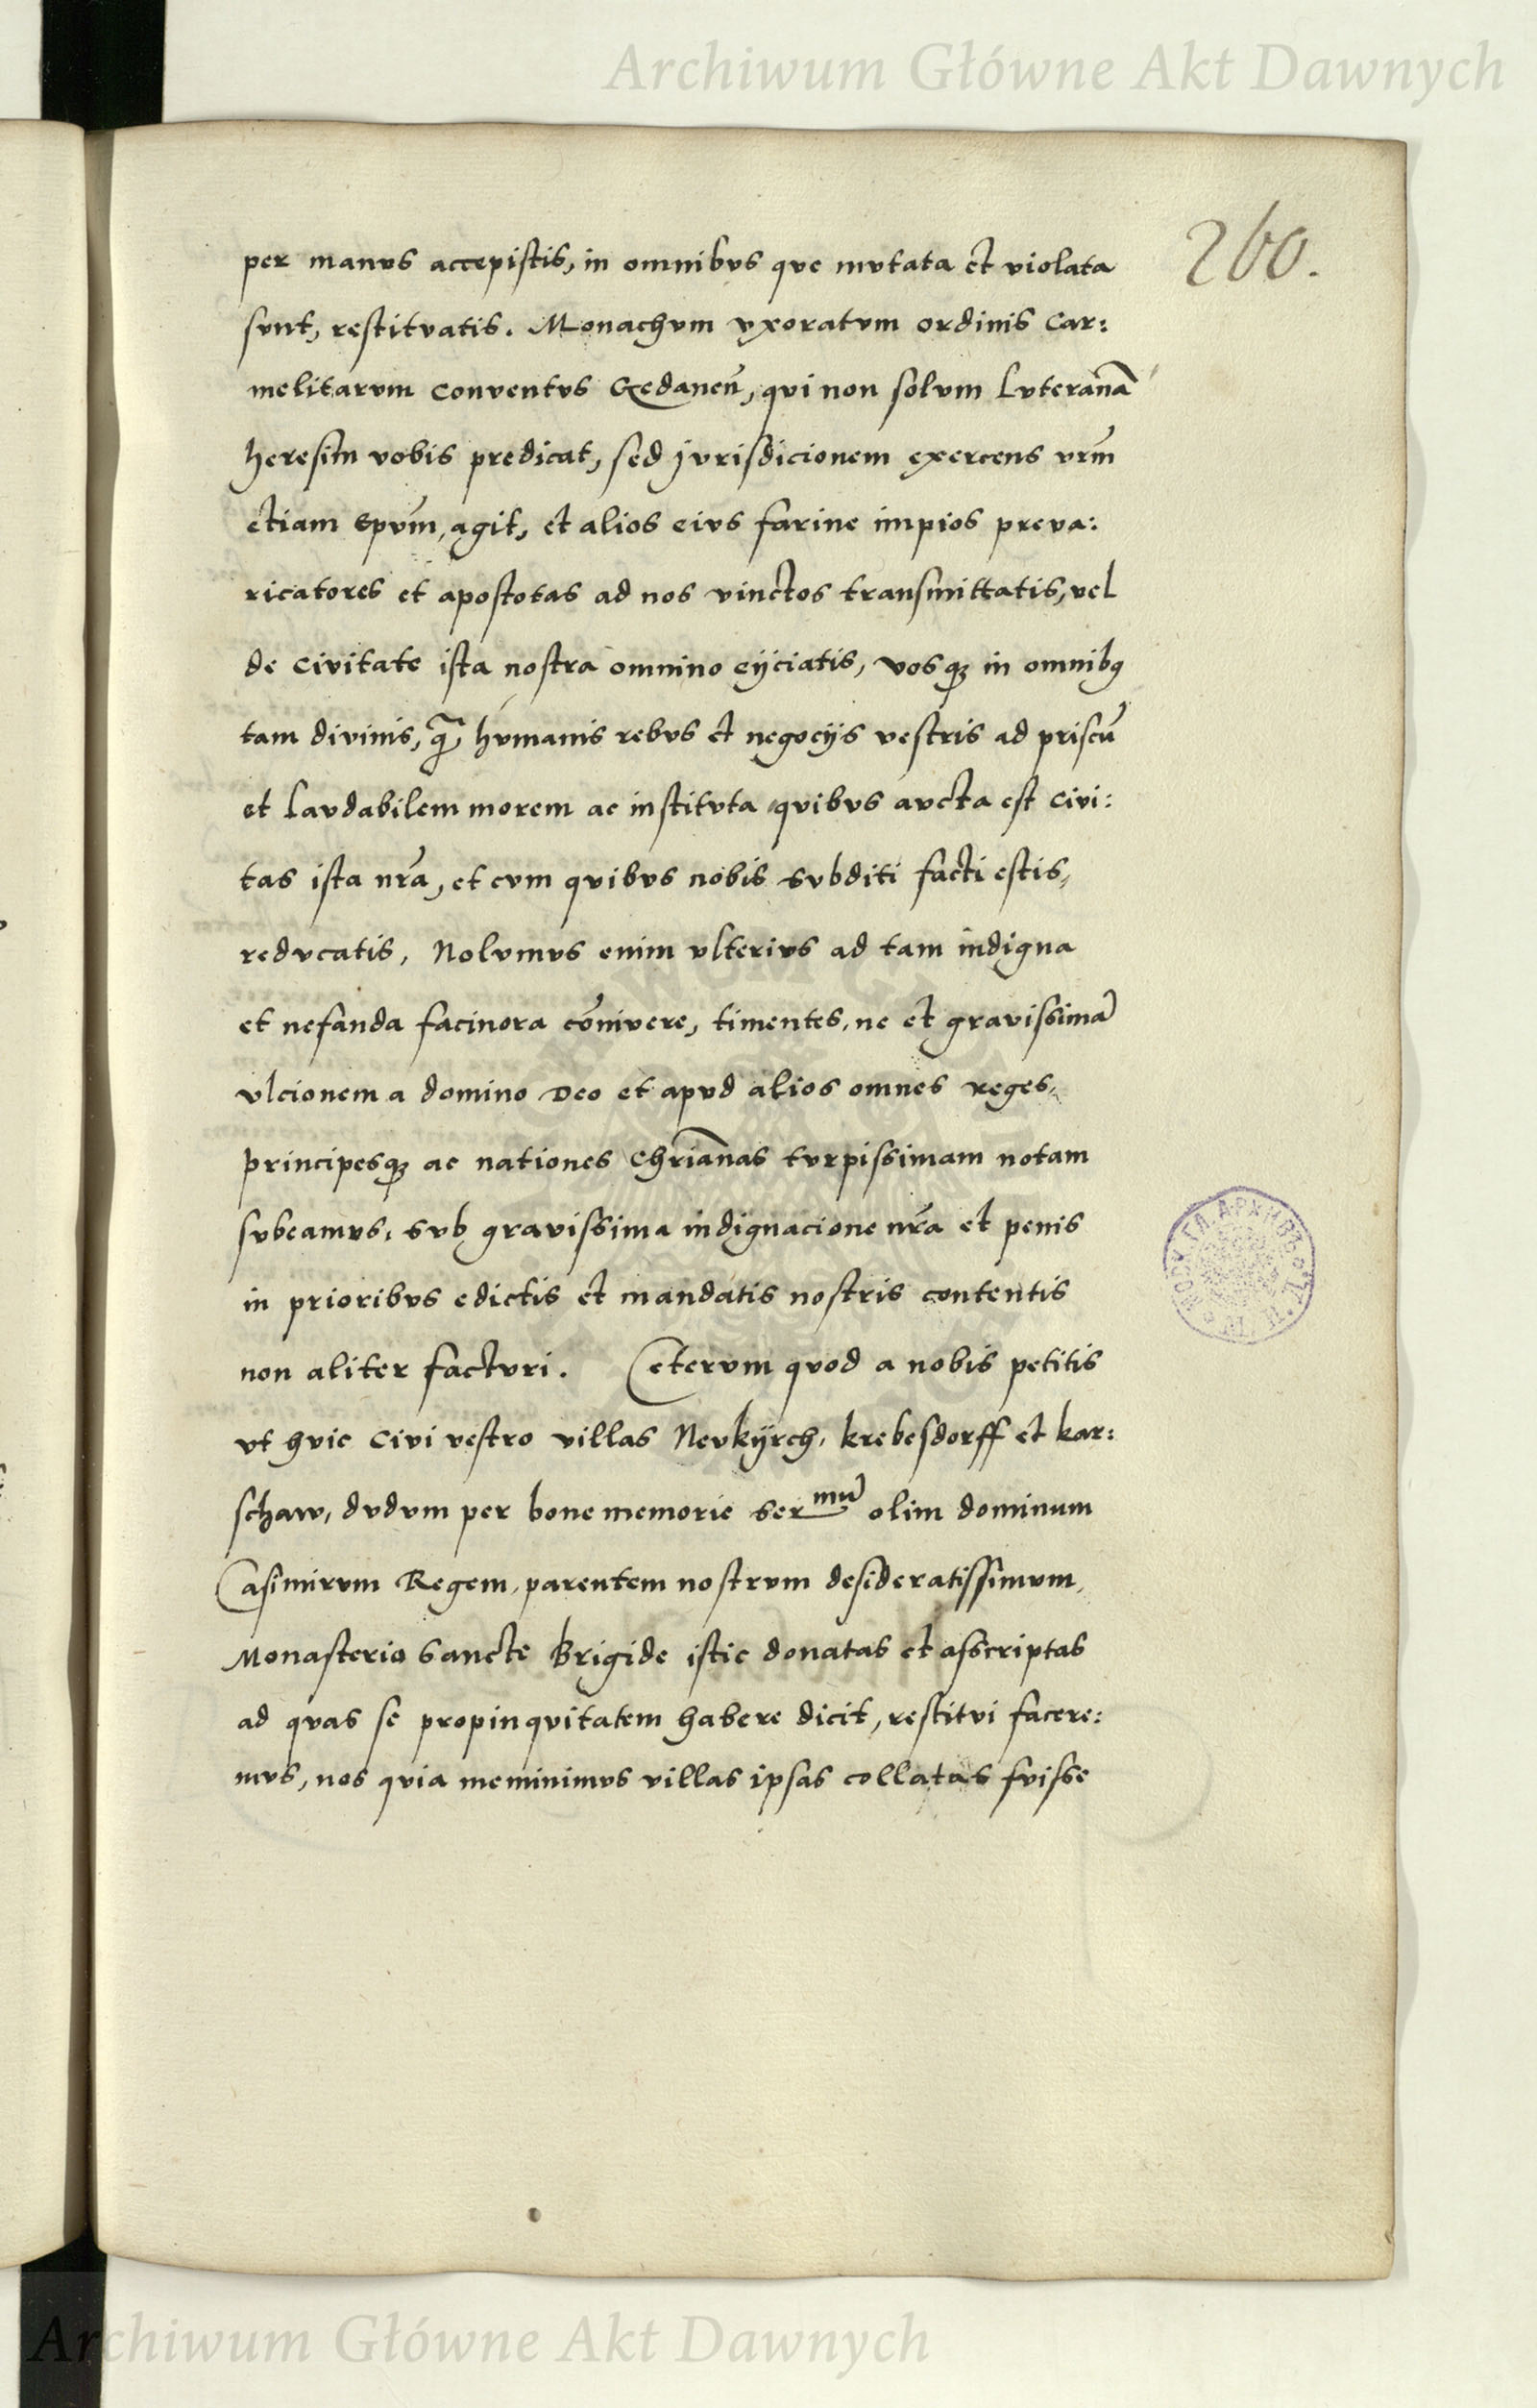 Archiwum Główne Akt Dawnych
260.
per manvs accepistis, in omnibvs qve mvtata et violata
svnt, restitvatis. Monachvm vxoratvm ordinis Car:
melitarvm Conventvs Gedaneñ, qvi non solvm Lvteranã
heresim vobis predicat, sed jvrisdicionem exercens vrm̃
etiam Epvm̃, agit, et alios eivs farine impios preva:
ricatores et apostotas ad nos vinctos transmittatis, vel
de Civitate ista nostra omnino eyciatis, vosqꝫ in omnibꝯ
tam divinis, q̃, hvmanis rebvs et negocijs vestris ad priscũ
et Lavdabilem morem ac institvta qvibvs avcta est Civi:
tas ista nrã, et cvm qvibvs nobis svbditi facti estis,
redvcatis, Nolvmvs enim vlterivs ad tam indigna
et nefanda facinora cõnivere, timentes, ne et gravissimã
vlcionem a domino Deo et apvd alios omnes reges,
principesqꝫ ac nationes Chriãnas tvrpissimam notam
svbeamvs, svb gravissima indignacione nrã et penis
in prioribvs edictis et mandatis nostris contentis
non aliter factvri. Cetervm qvod a nobis petitis
vt hvic Civi vestro villas Nevkÿrch, krebesdorff et kar:
schaw, dvdvm per bone memorie Sermũ olim dominum
Casimirvm Regem, parentem nostrvm desideratissimvm,
Monasterio Sancte Brigide istic donatas et asscriptas
ad qvas se propinqvitatem habere dicit, restitvi facere:
mvs, nos qvia meminimvs villas ipsas collatas fvisse
Archiwum Główne Akt Dawnych